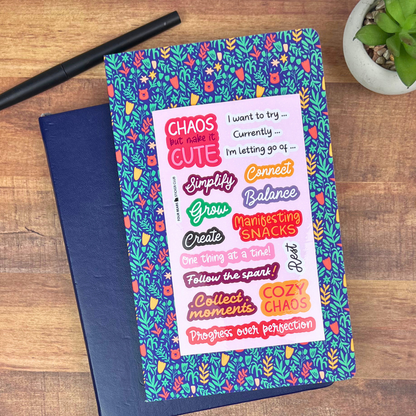 CHAOS
but make it
CUTE
I want to try ...
Currently ...
I'm letting go of ...
Simplify
Connect
Grow
Balance
Create
Manifesting
SNACKS
One thing at a time!
Rest
Follow the spark!
Collect
moments
COZY
CHAOS
Progress over perfection